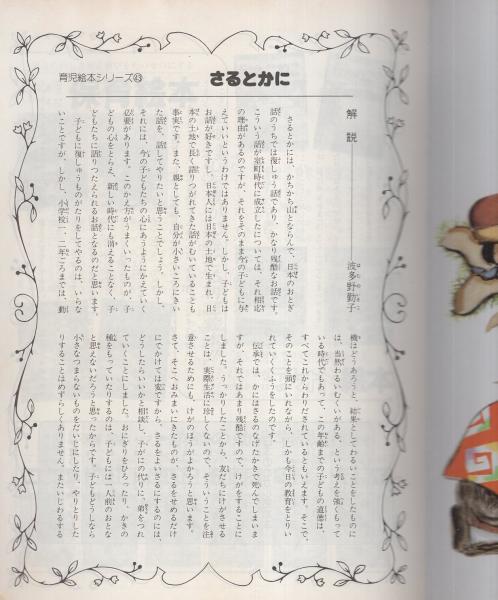 育児絵本シリーズ㊸
さるとかに
解説
波多野勤子
さるとかには、かちかち山とならんで、日本のおとぎ
話のうちでは復しゅう話であり、かなり残酷なお話です。
こういう話が室町時代に成立したについては、それ相応
の理由があるのですが、それをそのまま今の子どもに与
えていいというわけではありません。しかし、子どもは
お話が好きですし、日本人には日本の土地で生まれ、日
本の土地で長く語りつがれてきた話がむいていることも
事実です。また、親としても、自分が小さいころにきい
た話を、話してやりたいと思うことでしょう。しかし、
それには、今の子どもたちの心にあうようにかえていく
必要があります。このかえ方がうまくいったものが、子
どもの心をとらえ、新しい時代にも消えることなく、子
どもたちに語りつたえられるお話となるのだと思います。
子どもに復しゅうものがたりをしてやるのは、いらな
いことですが、しかし、小学校一、二年ごろまでは、動
機はどうあろうと、結果としてわるいことをしたものに
は、当然わるいむくいがある、という考えを強くもって
いる時代でもあって、この年齢までの子どもの道徳は、
すべてこれからわりだされているともいえます。そこで、
そのことを頭にいれながら、しかも今日の教育をとりい
れていくくふうをしたのです。
伝承では、かにはさるのなげたかきで死んでしまいま
すが、それではあまり残酷ですので、けがをすることに
しました。うっかりしたことから、友だちにけがさせる
ことは、実際生活に珍しくないので、そういうことを注
意させるためにも、けがのほうがよかろうと思います。
さて、そこへおみまいにきたものが、さるをせめるだけ
にでかけては変ですから、さるをよいさるにするのには、
どうしたらいいかと相談し、子がにの代りに、弟をつれ
ていくことにしました。おにぎりをひろったり、かきの
種をもっていたりするのは、子どもには一人前のおとな
と思えないだろうと思ったからです。子どもどうしなら
小さなつまらないものをだいじにしたり、やりとりした
りすることはめずらしくありません。またいじわるする